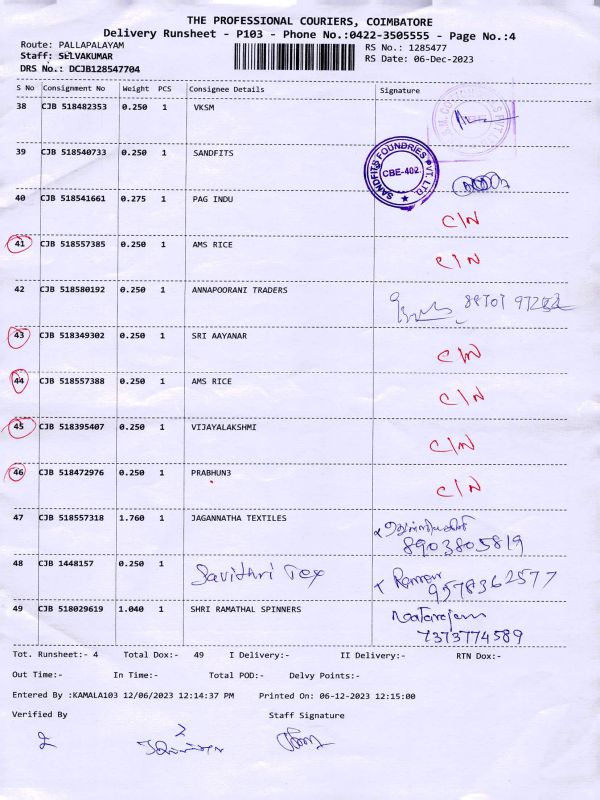 THE PROFESSIONAL COURIERS, COIMBATORE
Delivery Runsheet - P103 - Phone No.:0422-3505555 - Page No.:4
Route: PALLAPALAYAM RS No.: 1285477
Staff: SELVAKUMAR RS Date: 06-Dec-2023
DRS No.: DCJB128547704
S No Consignment No Weight PCS Consignee Details Signature
38 CJB 518482353 0.250 1 VKSM
39 CJB 518540733 0.250 1 SANDFITS
SANDFITS FOUNDRIES PVT. LTD.
CBE-402.
40 CJB 518541661 0.275 1 PAG INDU C/N
41 CJB 518557385 0.250 1 AMS RICE C/N
42 CJB 518580192 0.250 1 ANNAPOORANI TRADERS
43 CJB 518349302 0.250 1 SRI AAYANAR C/N
44 CJB 518557388 0.250 1 AMS RICE C/N
45 CJB 518395407 0.250 1 VIJAYALAKSHMI C/N
46 CJB 518472976 0.250 1 PRABHUN3 C/N
47 CJB 518557318 1.760 1 JAGANNATHA TEXTILES
8903805819
48 CJB 1448157 0.250 1 Savithri Tex Raman
9578362577
49 CJB 518029619 1.040 1 SHRI RAMATHAL SPINNERS Natarajan
7373774589
Tot. Runsheet:- 4 Total Dox:- 49 I Delivery:- II Delivery:- RTN Dox:-
Out Time:- In Time:- Total POD:- Delvy Points:-
Entered By :KAMALA103 12/06/2023 12:14:37 PM Printed On: 06-12-2023 12:15:00
Verified By Staff Signature